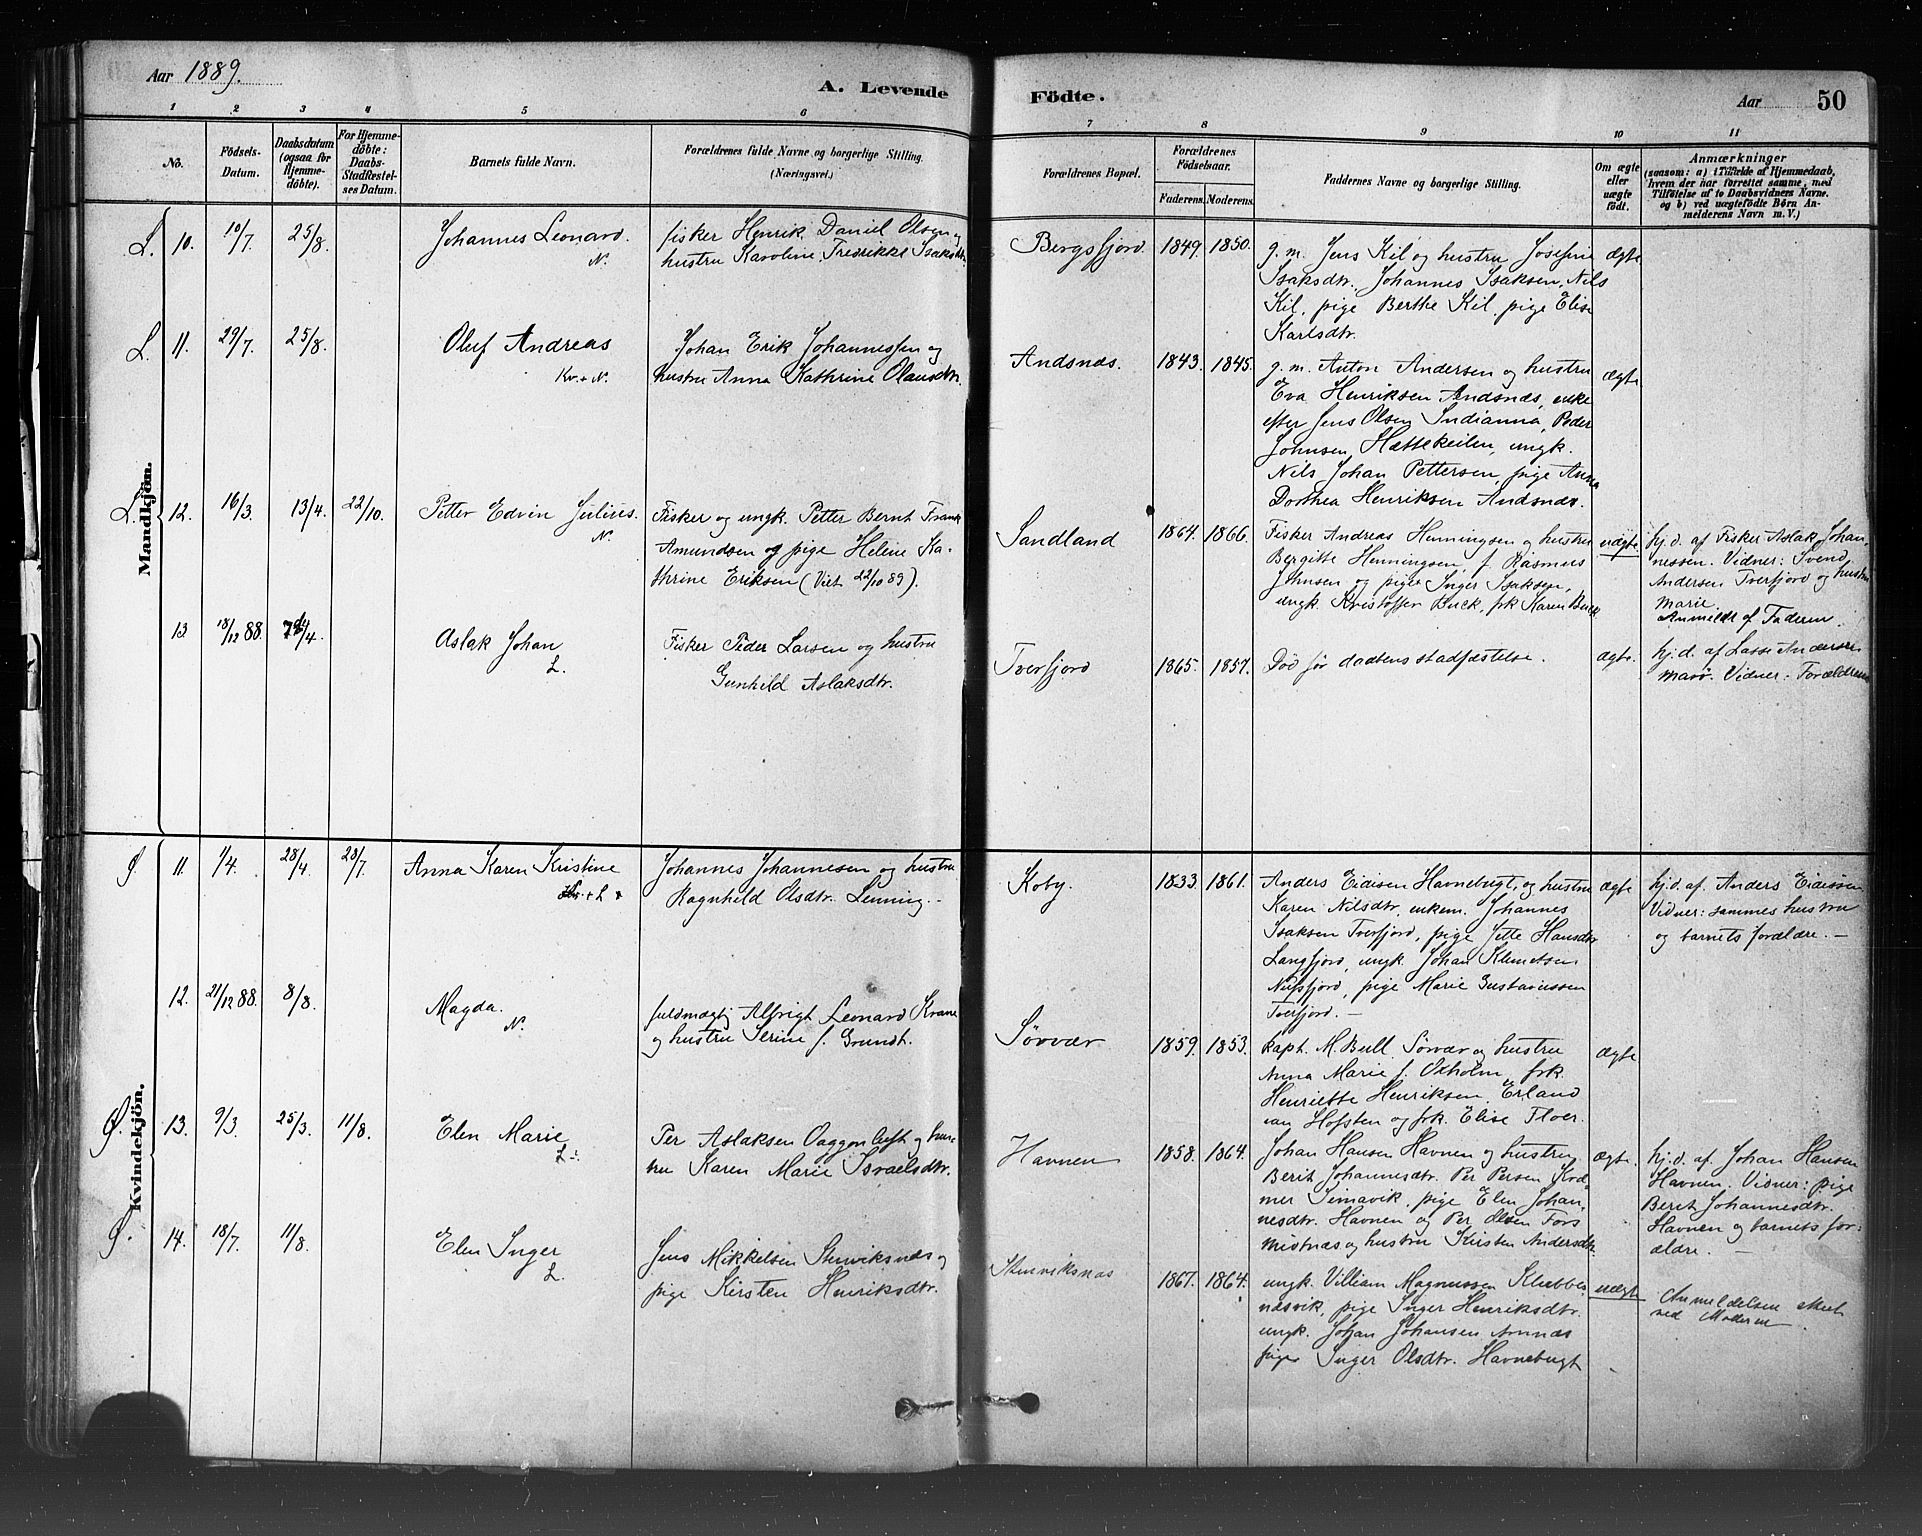 Aar 1889.
A. Levende
Födte.
Aar
50
1 2 3 4 5 6 7 8 9 10 11
No.
Födsels-
Datum.
Daabsdatum
(ogsaa for
Hjemme-
döbte).
For Hjemme-
döbte:
Daabs-
Stadfæstel-
ses Datum.
Barnets fulde Navn.
Forældrenes fulde Navne og borgerlige Stilling.
(Næringsvei.)
Forældrenes Bopæl.
Forældrenes
Födselsaar.
Faderens. Moderens.
Faddernes Navne og borgerlige Stilling.
Om ægte
eller
uægte
födt.
Anmærkninger
(saasom: a) i Tilfælde af Hjemmedaab,
hvem der har forrettet samme, med
Tilföielse af to Daabsvidners Navne,
og b) ved uægtefödte Börn An-
melderens Navn m. V.)
Mandkjön.
L. 10. 10/7 25/8. Johannes Leonard.
N.
fisker Henrik Daniel Olsen og
hustru Karoline Fredrikke Isaksdtr.
Bergsfjord 1849. 1850.
g. m. Jens Kil og hustru Josefine
Isaksdtr. Johannes Isaksen, Nils
Kil, pige Berthe Kil, pige Elise
Karlsdtr.
ægte
L. 11. 29/7. 25/8. Oluf Andreas
Kv. + N.
Johan Erik Johannessen og
hustru Anna Kathrine Olausdtr.
Andsnæs. 1843. 1845.
g. m. Anton Andersen og hustru
Eva Henriksen Andsnæs, enke
efter Jens Olsen Indianna, Peder
Johnsen Hættekeilen, ungk.
Nils Johan Pettersen, pige Anna
Dorthea Henriksen Andsnæs.
ægte
L. 12. 16/3. 13/4. 22/10. Petter Edvin Julius.
N.
Fisker og ungk. Petter Bernt Frank
Amundsen og pige Helene Ka-
thrine Eriksen (Viet 22/10 89).
Sandland 1864. 1866.
Fisker Andreas Henningsen og hustru
Bergitte Henningsen, f. Rasmus
Johnsen og pige Inger Isaksen,
ungk. Kristoffer Buck, frk Karen Buck
uægte
hj.d. af Fisker Aslak Johan-
nessen. Vidner: Svend
Andersen Tverfjord og hustru
Marie.
Anmeldt af Faderen.
13 18/12 88. Aslak Johan
L.
Fisker Peder Larsen og hustru
Gunhild Aslaksdtr.
Tverfjord 1865. 1857.
Död før daabens stadfæstelse.
ægte.
hj.d. af Lasse Andersen
Vidner: Forældrene
Kvindekjön.
Ø. 11. 1/4. 28/4 28/7. Anna Karen Kristine
+ L
Johannes Johannesen og hustru
Ragnhild Olsdtr. Lenning.
Koby. 1833. 1861.
Anders Eidisen Havnebugt, og hustru
Karen Nilsdtr, enkem. Johannes
Isaksen Tverfjord, pige Jette Hansdtr
Langfjord, ungk. Johan Klemetsen
Nufsfjord, pige Marie Gustavussen
Tverfjord. —
ægte
hj.d. af. Anders Eidissen
Vidner: sammes hustru
og barnets forældre. —
12. 21/12 88. 8/8. Magda.
N.
fuldmægtig Albrigt Leonard Krane
og hustru Serine f. Grundt.
Sørvær 1859. 1853.
kapt. M. Bull Sørvær og hustru
Anna Marie f. Oxholm, frk.
Henriette Henriksen, Erland
van Hofsten og frk. Elise Floer.
ægte
Ø. 13. 9/3. 25/3. 11/8. Elen Marie
L.
Per Aslaksen og hus-
tru Karen Marie Israelsdtr.
Havnen 1858. 1864.
Johan Hansen Havnen og hustru
Berit Johannesdtr. Per Persen
Simavik, pige Elen Johan-
nesdtr. Havnen og Per Olsen Fors
og hustru Kirsten Andersdtr
ægte.
hj.d. af Johan Hansen
Havnen. Vidner: pige
Berit Johannesdtr.
Havnen og barnets for-
ældre. —
Ø. 14. 18/7. 11/8. Elen Inger
L.
Jens Mikkelsen Stenviksnæs og
pige Kirsten Henriksdtr.
Stenviksnæs 1867. 1864.
ungk. Villiam Magnussen Klubbe-
næsvik, pige Inger Henriksdtr.
ungk. Johan Johansen Arnnæs
pige Inger Olsdtr. Havnebugt
uægte
Anmeldelsen skeet
ved Moderen